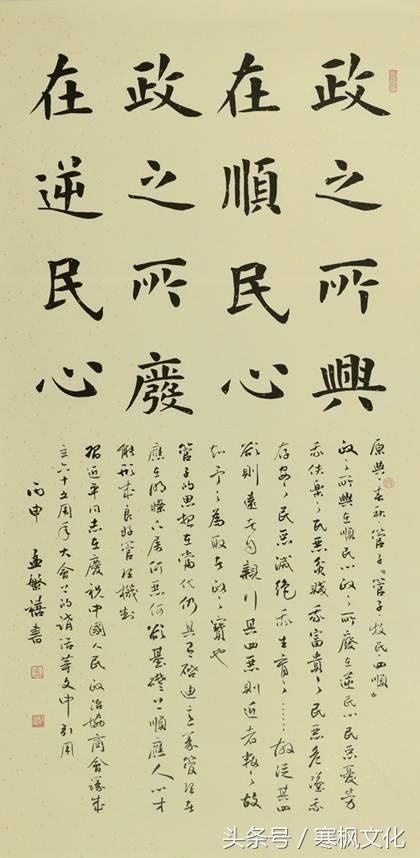 政之所興
在順民心
政之所廢
在逆民心
原典春秋管子《管子·牧民·四順》
政之所興在順民心政之所廢在逆民心民惡憂勞
我佚樂之民惡貧賤我富貴之民惡危墜我
存安之民惡滅絕我生育之……故從其四
欲則遠者自親行其四惡則近者叛之故
知予之為取者政之寶也
管子的思想在當代仍具有啟迪意義管理者
應在明瞭人惡何欲基礎上順應人心才
能形成良好管理機制
習近平同志在慶祝中國人民政治協商會議成
立六十五周年大會上的講話等文中引用
丙申 孟繁禧書
头条号 / 寒枫文化